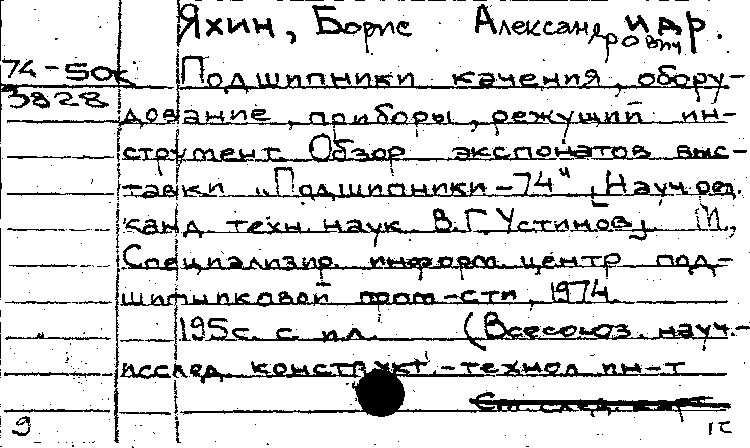 Яхин, Борис Александрович и др.
74-50к Подшипники качения, обору-
3828 дование, приборы, режущий ин-
струмент. Обзор экспонатов выс-
тавки „Подшипники-74" [Науч. ред.
канд. техн. наук В.Г. Устинов]. М.,
Специализир. информ. центр под-
шипниковой пром-сти, 1974.
195с. с ил. (Всесоюз. науч.-
исслед. конструкт.-технол ин-т
См. след. карт.
9 1С